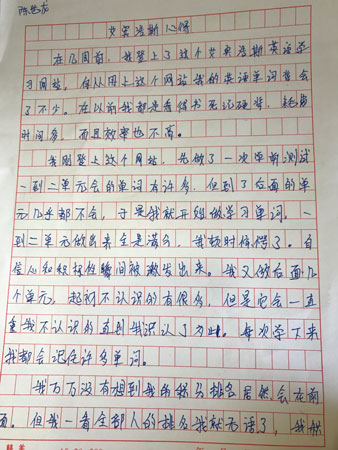 艾宾浩斯心得
在几周前，我登上了这个艾宾浩斯英语学
习网站，自从用上这个网站我的英语单词背会
了不少。在以前我都是看借书死记硬背，耗费
时间多，而且效率也不高。
我刚登上这个网站，先做了一次学前测试
一到二单元会的单词有许多，但到了后面的单
元几乎都不会，于是我就开始做学习单词。一
到二单元做出来全是满分，我顿时愣了。自
信心和积极性瞬间被激发出来。我又做后面几
个单元，起初不认识的有很多，但是它会一直
重我不认识的直到我识认了为止。每次学下来
我都会记住许多单词。
我万万没有想到我的积分排名居然会在前
面。但我一看全部人的排名我就无语了，我然